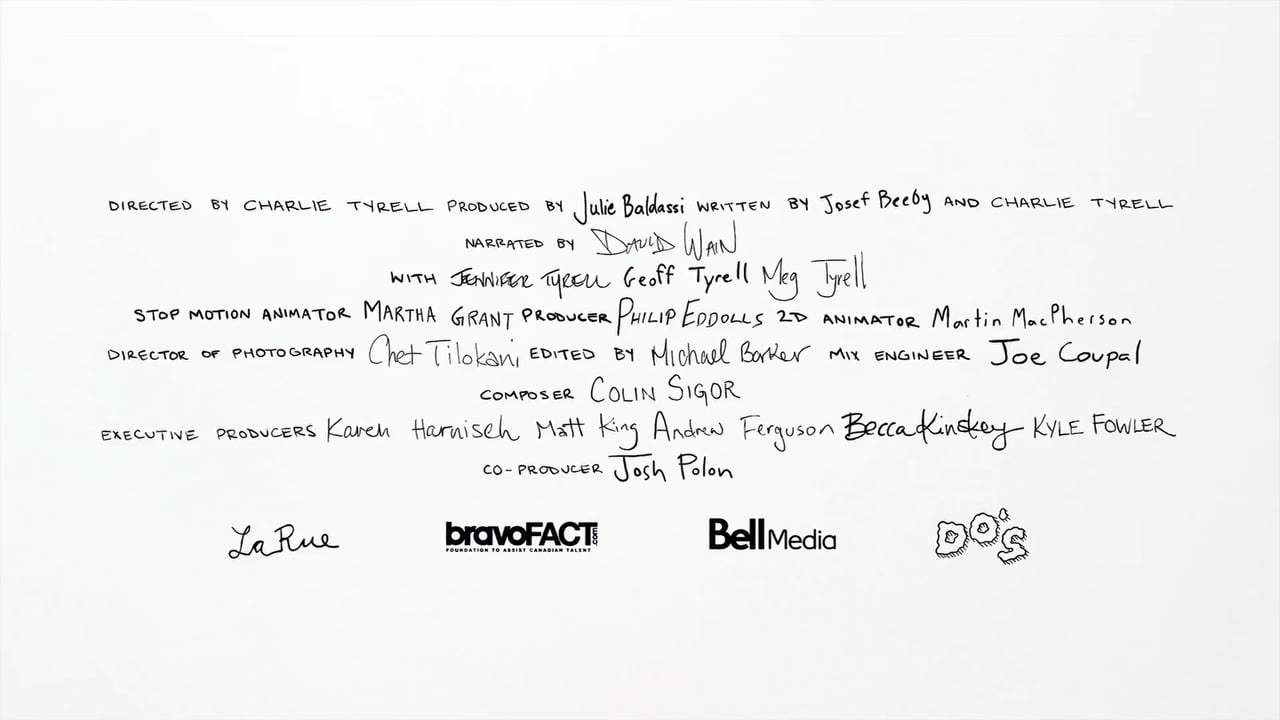 DIRECTED BY CHARLIE TYRELL PRODUCED BY Julie Baldassi WRITTEN BY Josef Beeby AND CHARLIE TYRELL
NARRATED BY DAVID WAIN
WITH JENNIFER TYRELL Geoff Tyrell Meg Tyrell
STOP MOTION ANIMATOR MARTHA GRANT PRODUCER PHILIP EDDOLLS 2D ANIMATOR Martin MacPherson
DIRECTOR OF PHOTOGRAPHY Chet Tilokani EDITED BY Michael Barker MIX ENGINEER Joe Coupal
COMPOSER COLIN SIGOR
EXECUTIVE PRODUCERS Karen Harnisch Matt King Andrew Ferguson Becca Kinskey KYLE FOWLER
CO-PRODUCER Josh Polon
LaRue bravoFACT.com Bell Media DO'S
FOUNDATION TO ASSIST CANADIAN TALENT